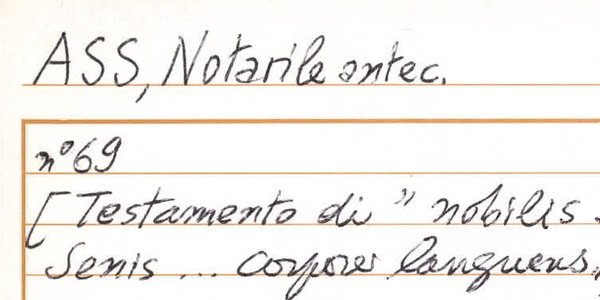 ASS, Notarile antec.
n° 69
[Testamento di " nobilis
Senis ... corpore languens,